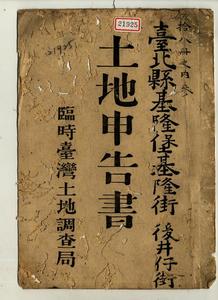 21925
拾八冊之內叁
臺北縣基隆保基隆街 後井仔街
土地申告書
臨時臺灣土地調查局
21925